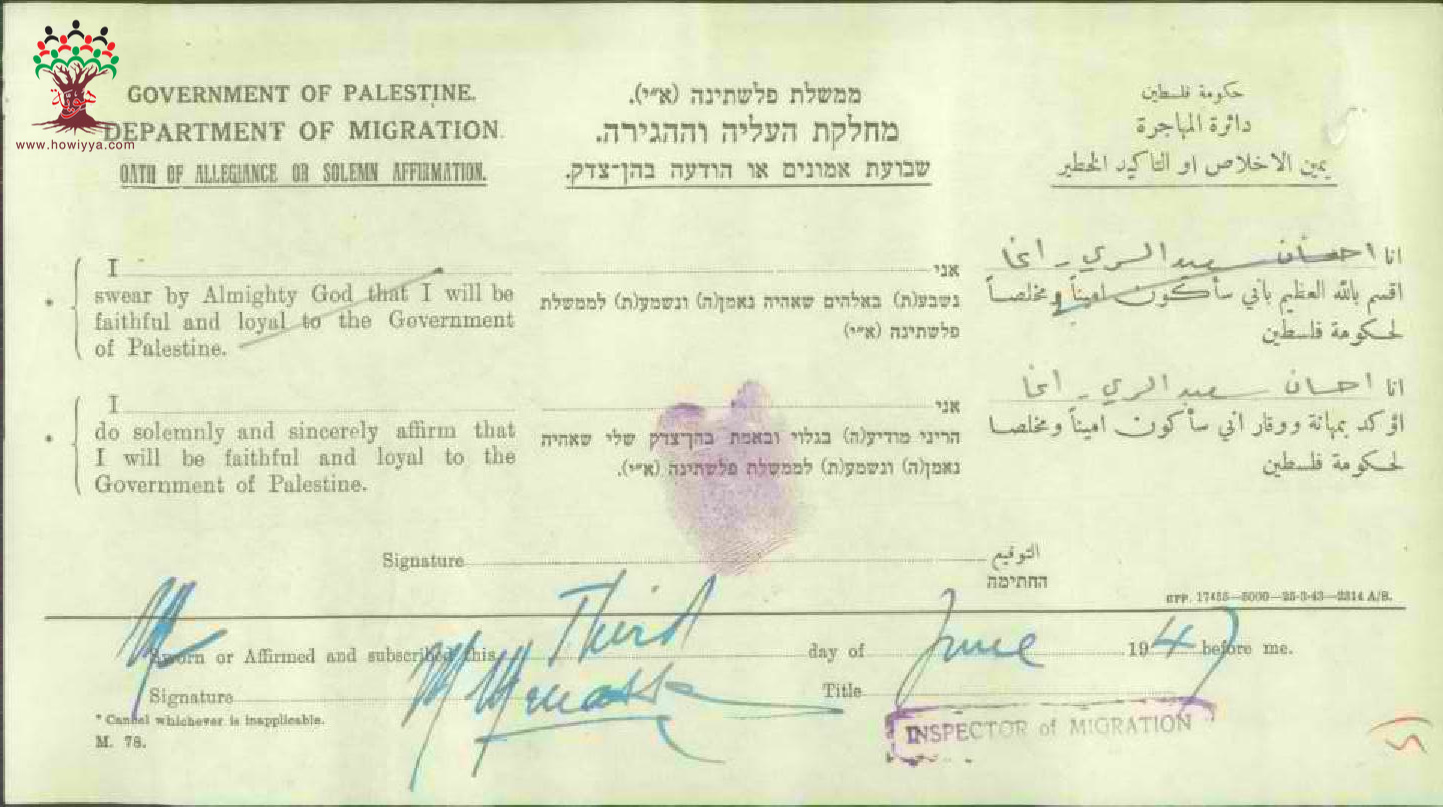 هوية
www.howiyya.com
GOVERNMENT OF PALESTINE.
DEPARTMENT OF MIGRATION.
OATH OF ALLEGIANCE OR SOLEMN AFFIRMATION.
ממשלת פלשתינה (א״י).
מחלקת העליה וההגירה.
שבועת אמונים או הודעה בהן־צדק.
حكومة فلسطين
دائرة المهاجرة
يمين الاخلاص او التأكيد الخطير
* I
swear by Almighty God that I will be
faithful and loyal to the Government
of Palestine.
אני
נשבע(ת) באלהים שאהיה נאמן(ה) ונשמע(ת) לממשלת
פלשתינה (א״י)
انا احسان سعيد السري - اغا
اقسم بالله العظيم باني سأكون اميناً ومخلصاً
لحكومة فلسطين
* I
do solemnly and sincerely affirm that
I will be faithful and loyal to the
Government of Palestine.
אני
הריני מודיע(ה) בגלוי ובאמת בהן־צדק שלי שאהיה
נאמן(ה) ונשמע(ת) לממשלת פלשתינה (א״י).
انا احسان سعيد السري - اغا
اؤكد بمهانة ووقار اني سأكون اميناً ومخلصا
لحكومة فلسطين
Signature التوقيع
החתימה
GPP. 17455—5000—25-3-43—2314 A/B.
Sworn or Affirmed and subscribed this Third day of June 1947 before me.
Signature Title
INSPECTOR of MIGRATION
* Cancel whichever is inapplicable.
M. 78.